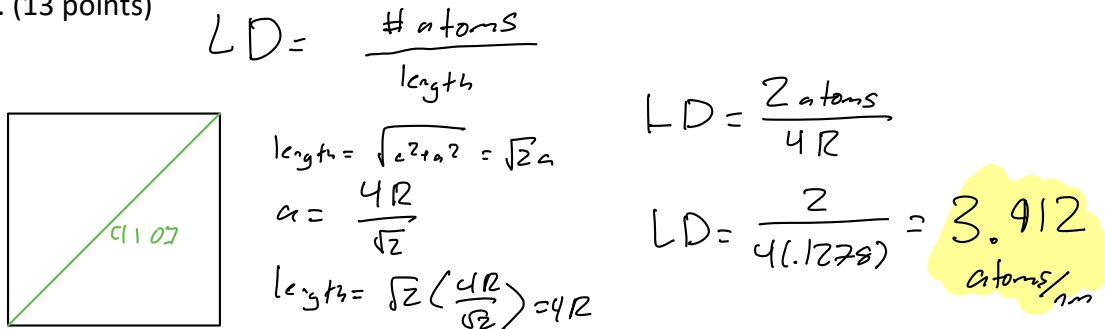 . (13 points)
LD = # atoms / length
length = √(a²+a²) = √2 a
a = 4R / √2
length = √2 (4R / √2) = 4R
[110]
LD = 2 atoms / 4R
LD = 2 / 4(.1278) = 3.912 atoms/nm